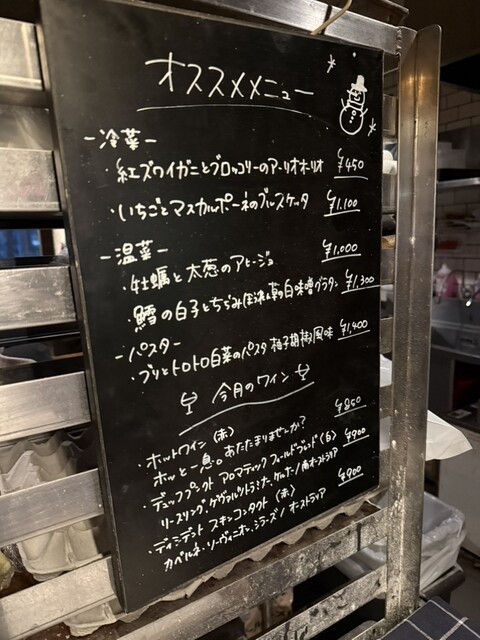 オススメメニュー
-冷菜-
・紅ズワイガニとブロッコリーのアーリオオーリオ ¥950
・いちごとマスカルポーネのブルスケッタ ¥1,100
-温菜-
・牡蠣と太葱のアヒージョ ¥1,000
・鱈の白子とちぢみ法蓮草の白味噌グラタン ¥1,300
-パスタ-
・ブリとトロトロ白菜のパスタ 柚子胡椒風味 ¥1,400
今月のワイン
・ホットワイン (赤) ¥850
ホッと一息。あたたまりませんか?
・デュップクト アロマティック フィールドブレンド (白) ¥900
リースリング、ゲヴュルツトラミナー、ケルナー / 南オーストラリア
・ディシデント スキンコンタクト (赤) ¥900
カベルネ・ソーヴィニオン、シラーズ / オーストラリア